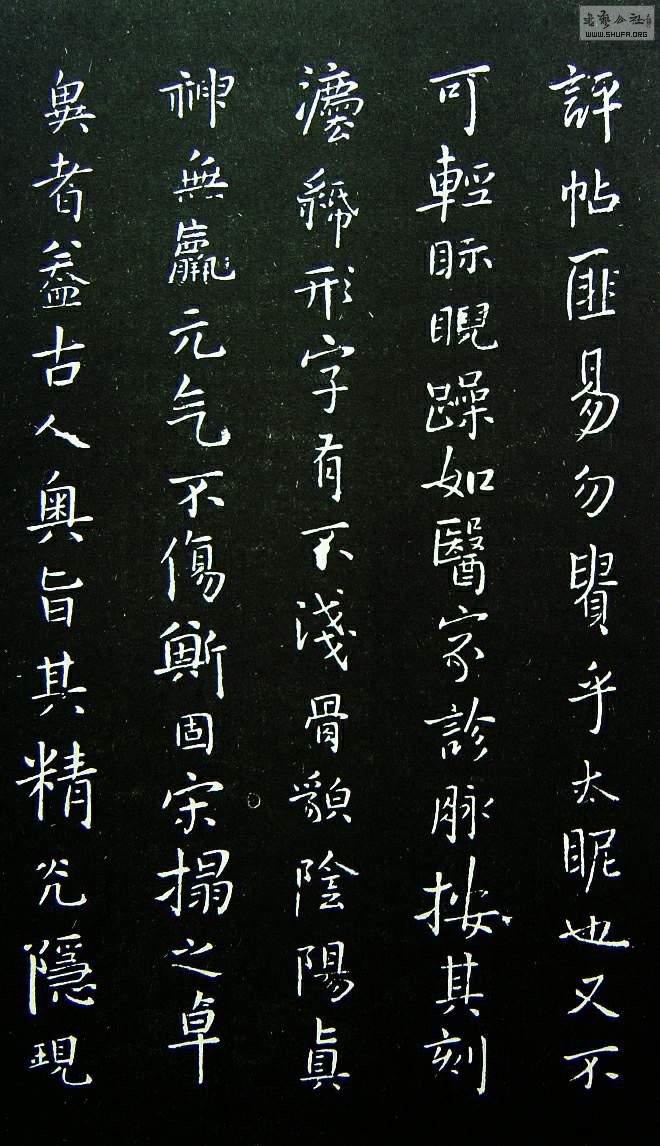 評帖匪易勿貴乎太眤也又不
可輕眎睨躁如醫家診脉按其刻
濃稀形字有不淺骨貌陰陽真
神無羸元气不傷斯固宋搨之卓
異者盖古人奥旨其精光隱現
WWW.SHUFA.ORG